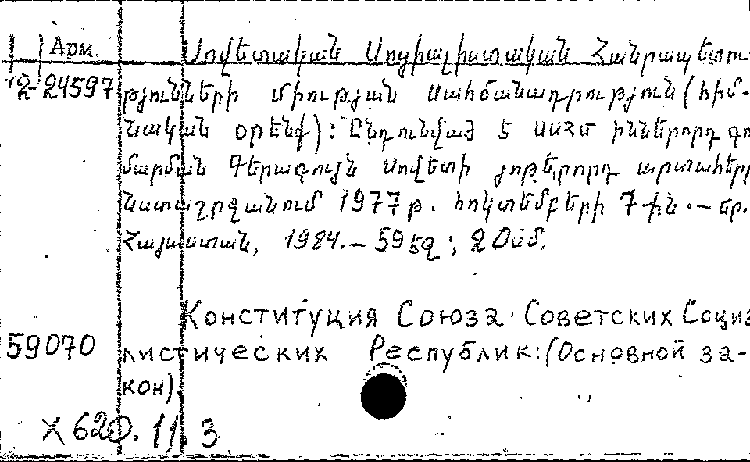 Арм. Սովետական Սոցիալիստական Հանրապետու-
2-24597 թյունների միության Սահմանադրություն (հիմ-
նական օրենք): Ընդունված է ՍՍՀՄ իններորդ գու
մարման Գերագույն Սովետի յոթերորդ արտահեր
նստաշրջանում 1977 թ. հոկտեմբերի 7-ին.— Եր.
Հայաստան, 1984.— 59 էջ; 20 սմ.
Конституция Союза Советских Социа
59070 листических Республик: (Основной за-
кон).
X 620.11.3